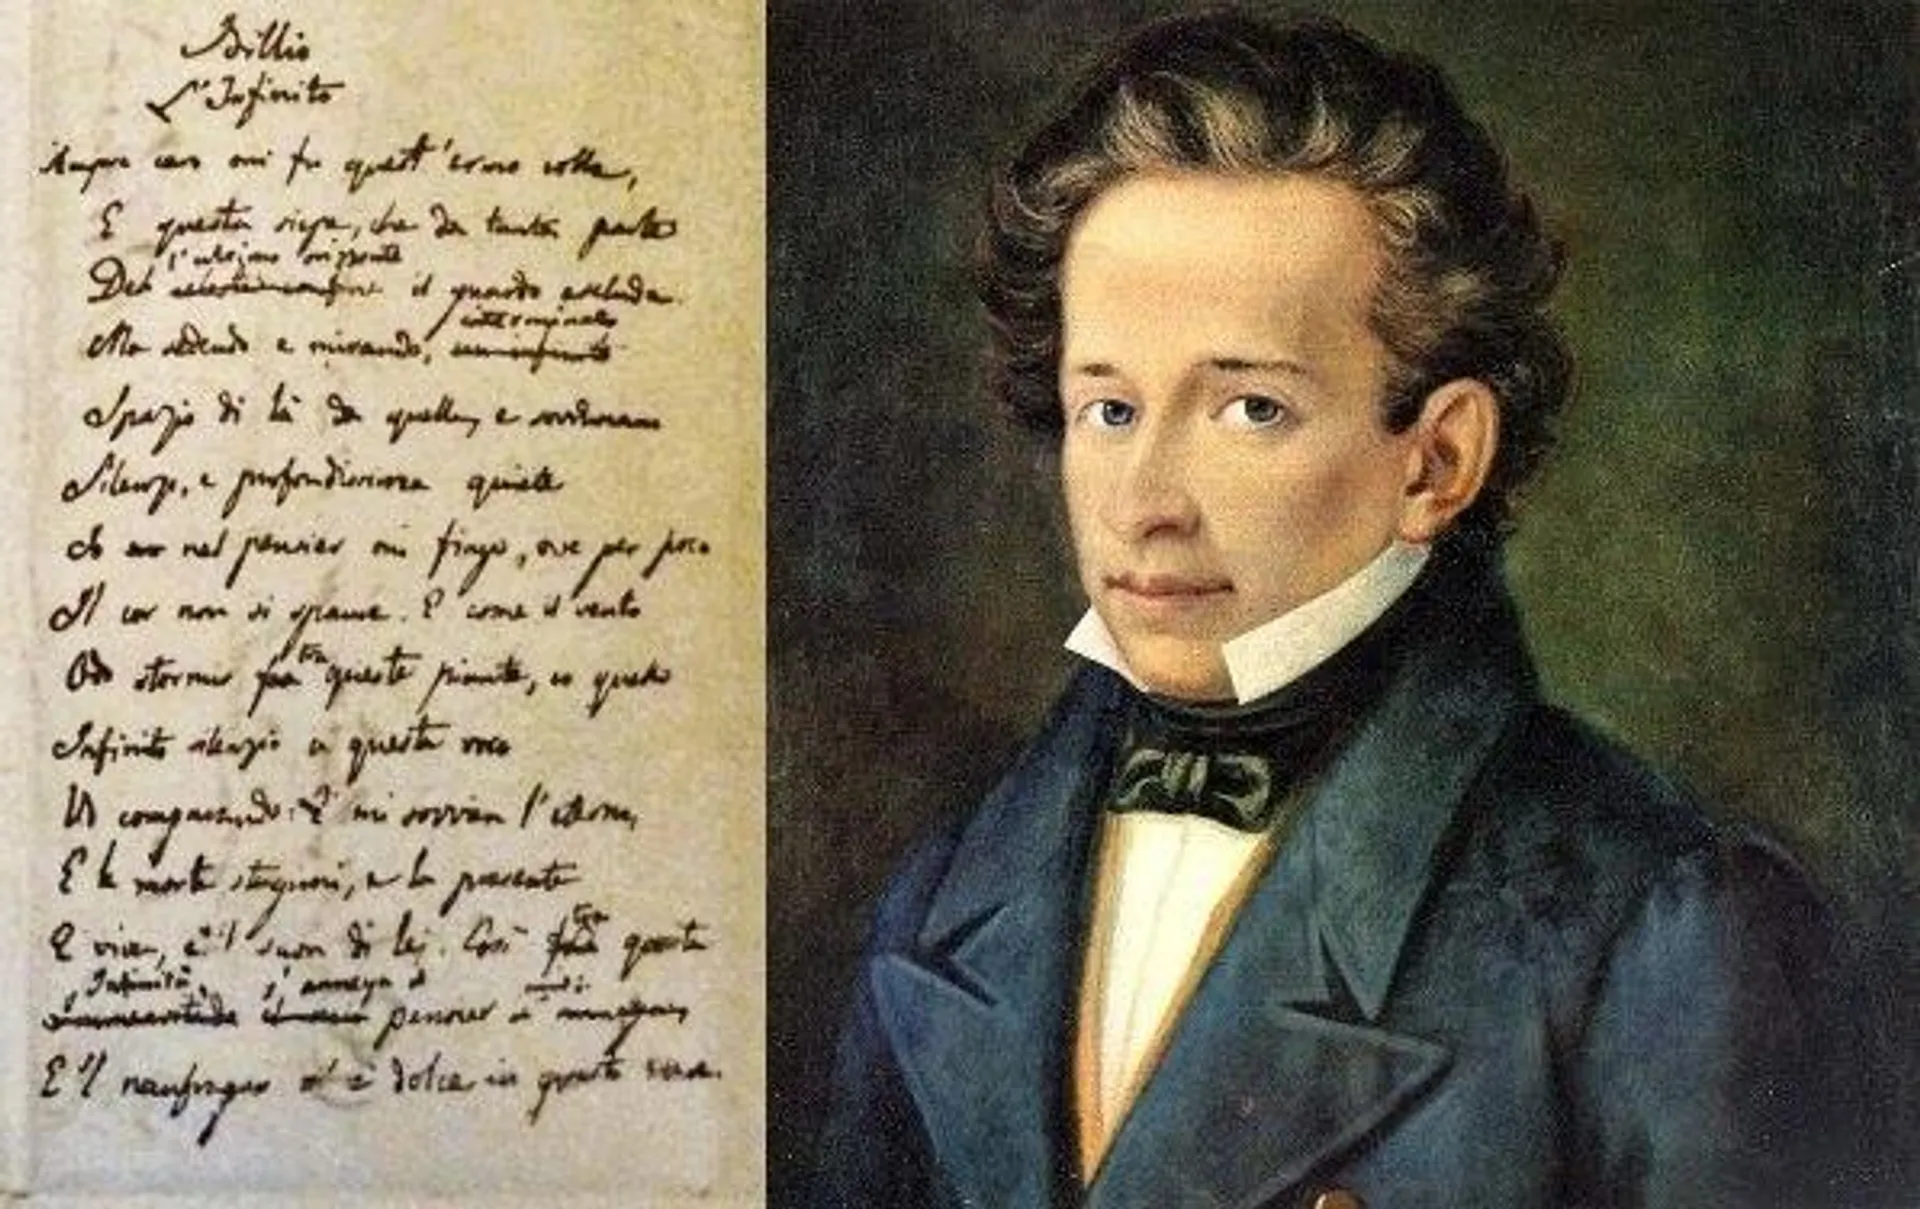 Idillio
L'Infinito
Sempre caro mi fu quest'ermo colle,
E questa siepe, che da tanta parte
l'ultimo orizzonte
Del il guardo esclude.
interminato
Ma sedendo e mirando,
Spazio di là da quella, e sovrumani
Silenzi, e profondissima quiete
Io nel pensier mi fingo, ove per poco
Il cor non si spaura. E come il vento
tra
Odo stormir fra queste piante, io quello
Infinito silenzio a questa voce
Vo comparando: E mi sovvien l'eterno,
E le morte stagioni, e la presente
tra
E viva, e 'l suon di lei. Così fra questa
Infinità s'annega il
pensier
E 'l naufragar m'è dolce in questo mare.